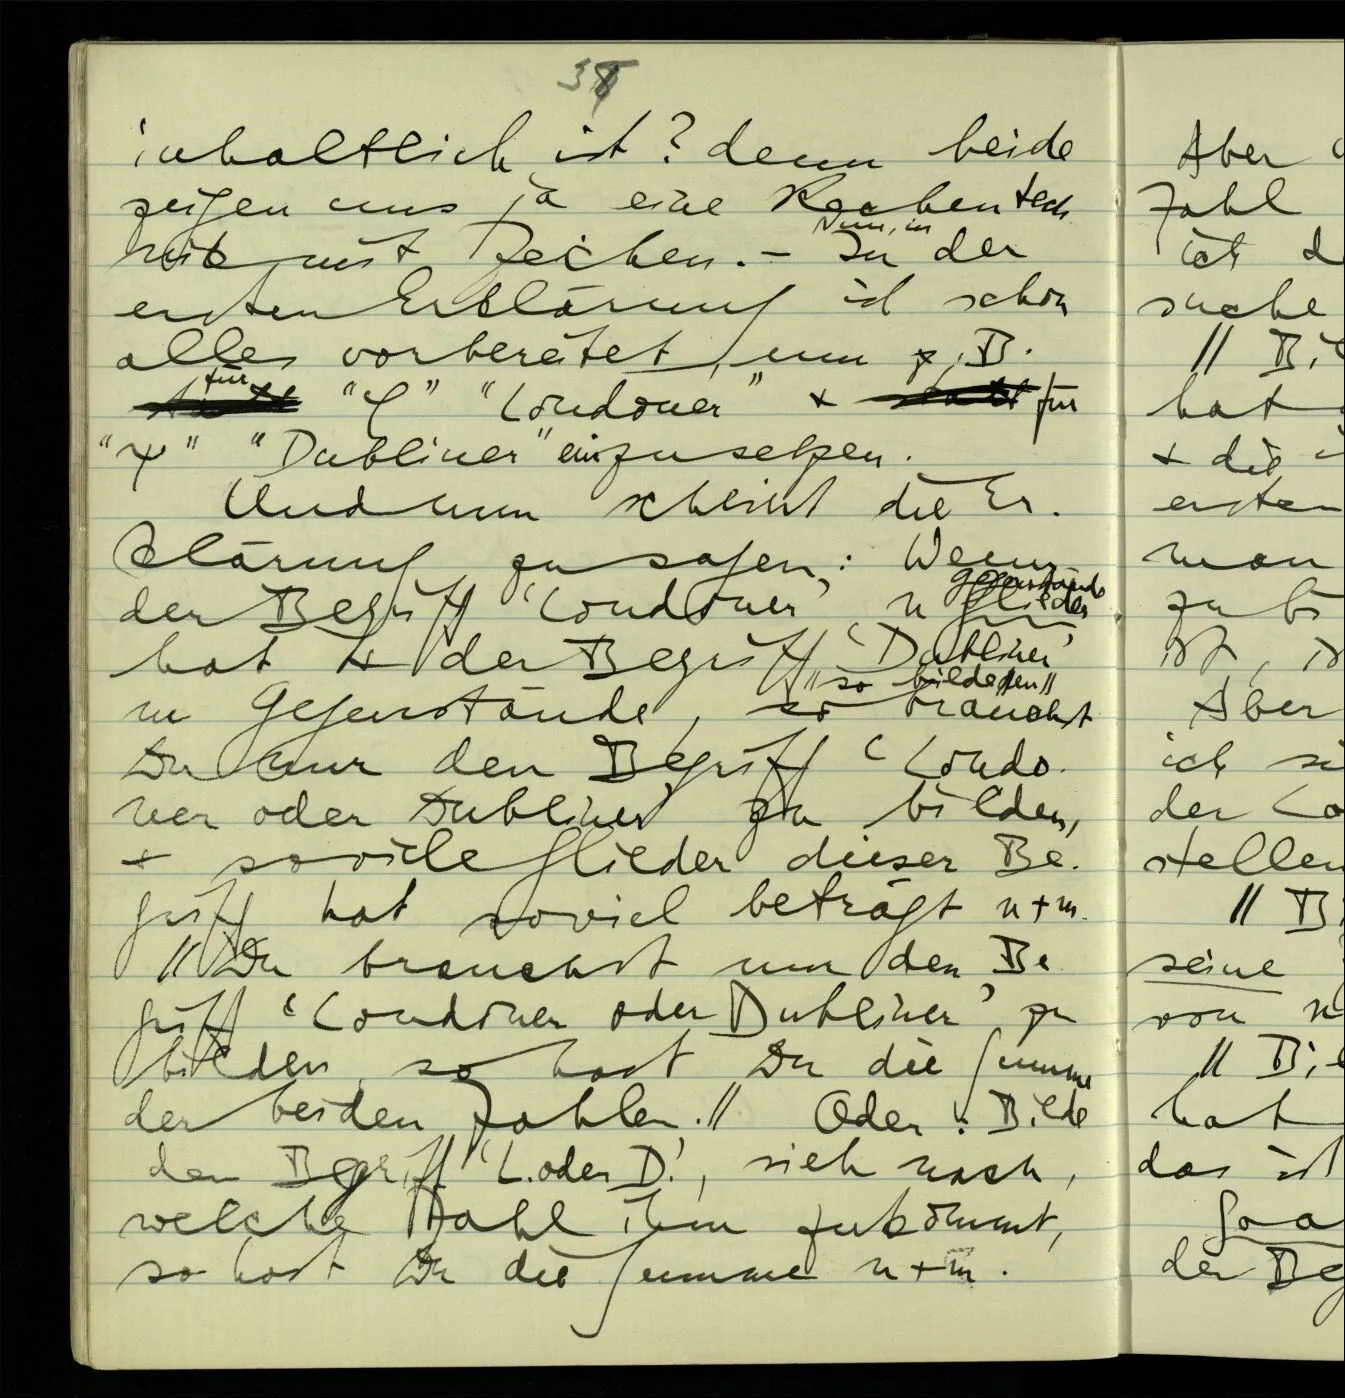 38
inhaltlich ist? denn beide
zeigen uns ja eine Rechentech
nik mit Zeichen. – In der
Nun, in
ersten Erklärung ist schon
alles vorbereitet, um z.B.
für
statt "φ" "Londoner" + statt für
"ψ" "Dubliner" einzusetzen.
Und nun scheint die Er-
klärung zu sagen: Wenn
Gegenstände
der Begriff 'Londoner' n Glieder
hat & der Begriff 'Dubliner'
// so bilde den //
m Gegenstände, so brauchst
Du nur den Begriff 'Londo-
ner oder Dubliner' zu bilden,
+ soviele Glieder dieser Be-
griff hat soviel beträgt n+m.
// Du brauchst nur den Be
griff 'Londoner oder Dubliner' zu
bilden, so hast Du die Summe
der beiden Zahlen. // Oder: Bilde
den Begriff 'L. oder D.', sieh nach,
welche Zahl ihm zukommt,
so hast Du die Summe n+m.
Aber
Zahl
ist
suche
// Bil
hat
+ die
ersten
man
zu bi
ist,
Aber
ich si
der Lo
stellen
// Bi
seine
von n
// Bil
hat
das ist
der Beg